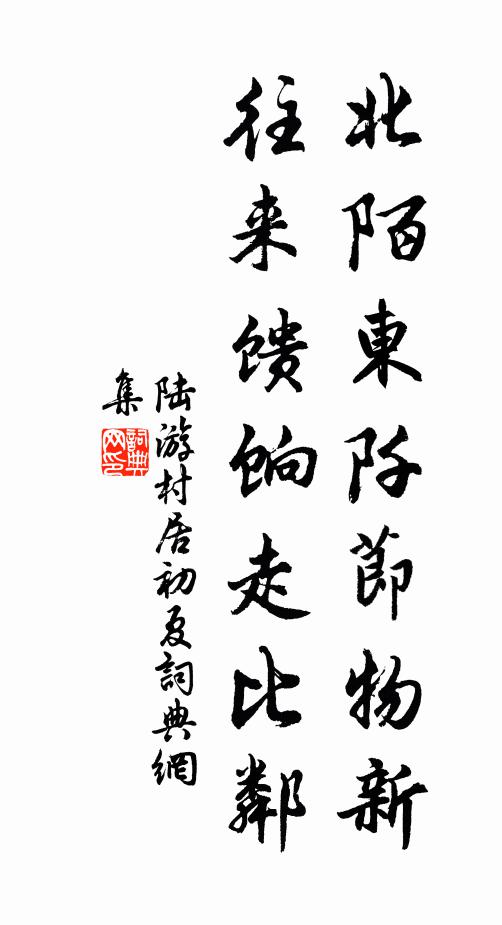 北陌東阡節物新
往来馈餉走比鄰
陆游村居初夏詞典網
集
詞典
网印